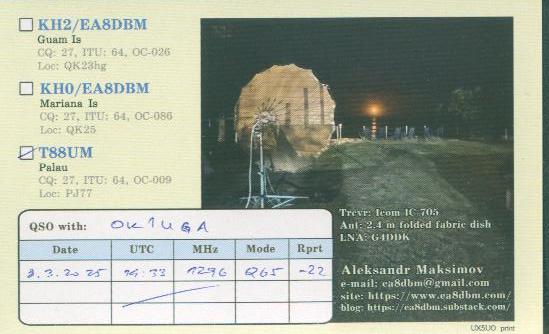 KH2/EA8DBM
Guam Is
CQ: 27, ITU: 64, OC-026
Loc: QK23hg
KH0/EA8DBM
Mariana Is
CQ: 27, ITU: 64, OC-086
Loc: QK25
T88UM
Palau
CQ: 27, ITU: 64, OC-009
Loc: PJ77
QSO with: OK1UGA
Date UTC MHz Mode Rprt
3.3.2025 14:33 1296 Q65 -22
Trcvr: Icom IC-705
Ant: 2.4 m folded fabric dish
LNA: G4DDK
Aleksandr Maksimov
e-mail: ea8dbm@gmail.com
site: https://www.ea8dbm.com/
blog: https://ea8dbm.substack.com/
UX5UO print